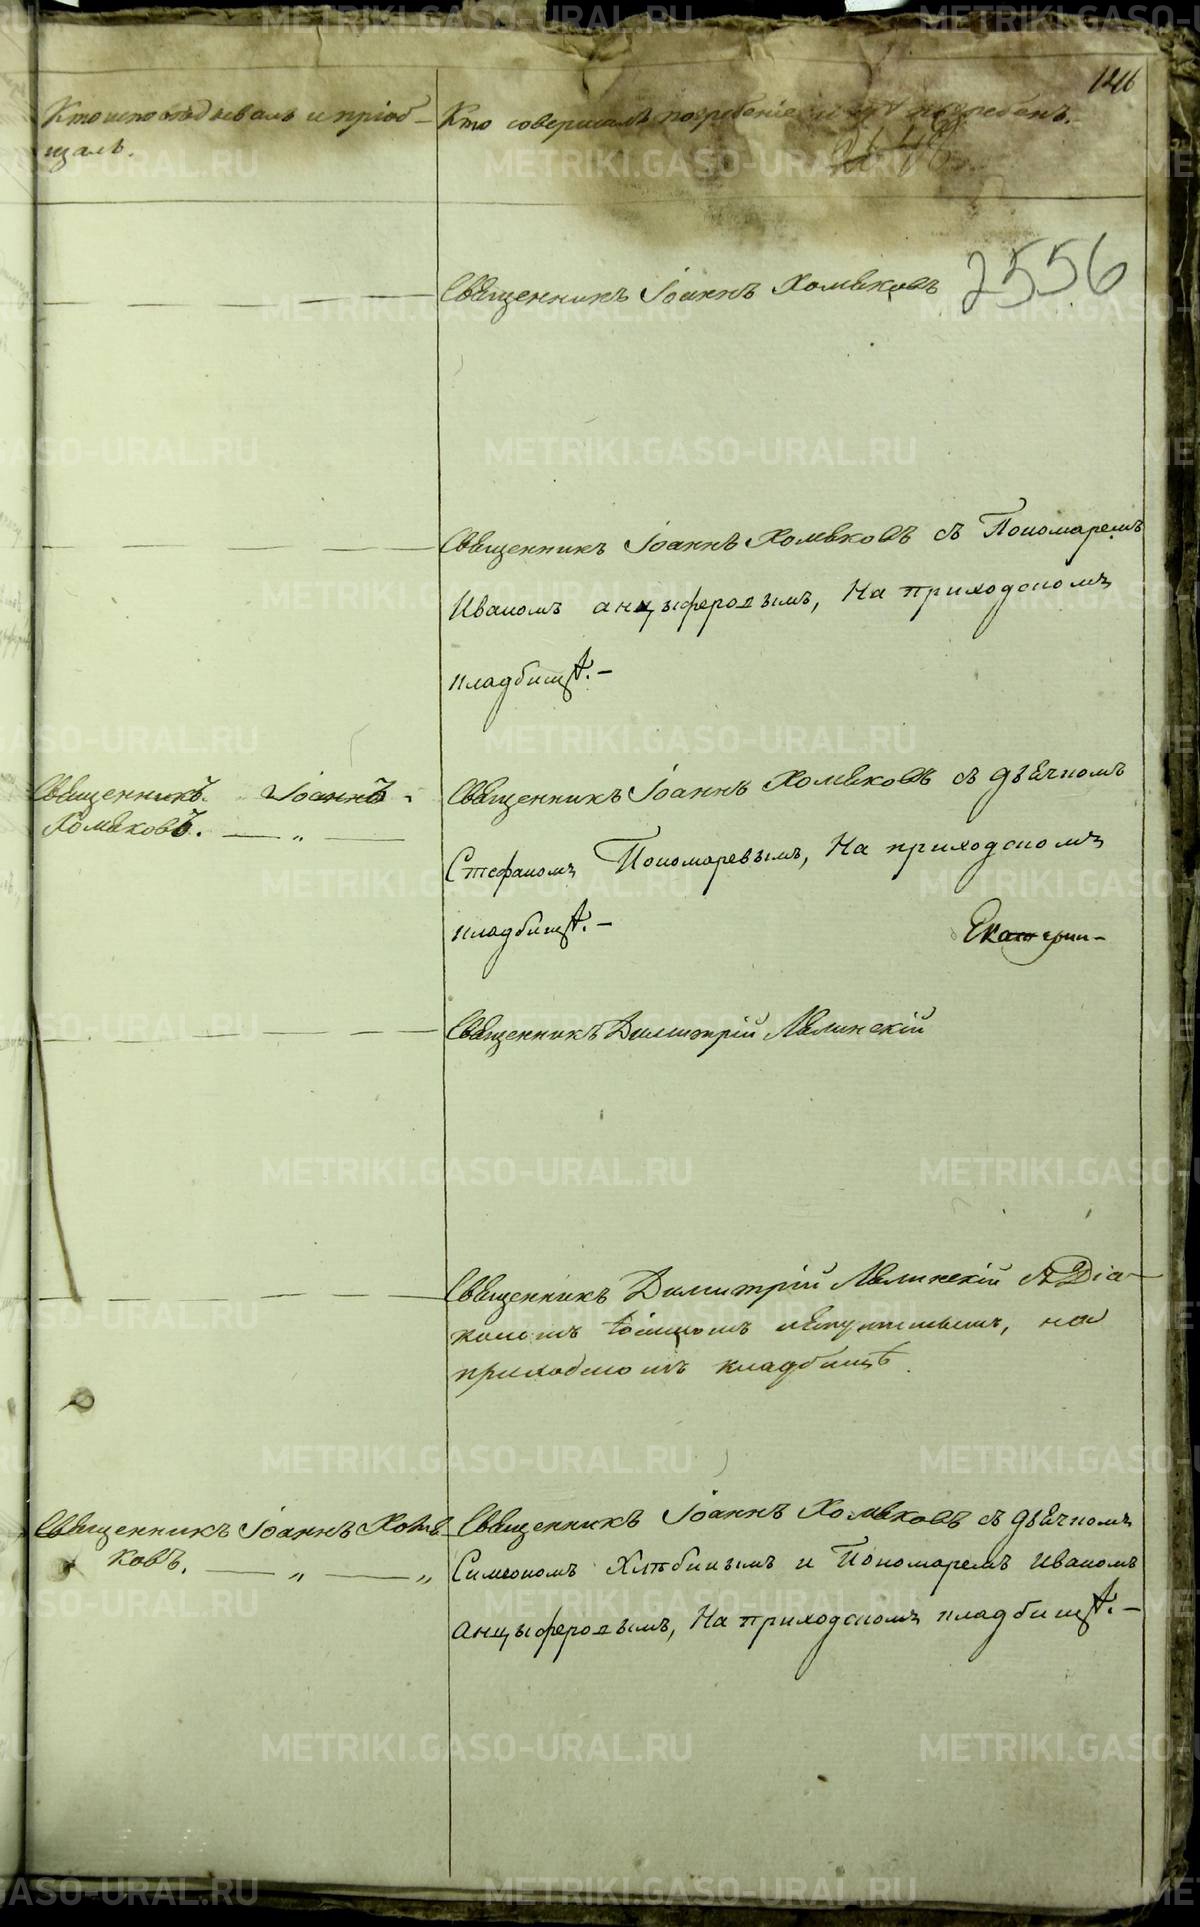 146
Кто исповѣдывалъ и пріоб-
щалъ.
Кто совершалъ погребеніе и гдѣ погребенъ.
2556
Священникъ Іоаннъ Хомяковъ
Священникъ Іоаннъ Хомяковъ съ Пономаремъ
Иваномъ Анцыферовымъ, На приходскомъ
кладбищѣ.-
Священникъ Іоаннъ
Хомяковъ. — „ —
Священникъ Іоаннъ Хомяковъ съ дьячкомъ
Стефаномъ Пономаревымъ, На приходскомъ
кладбищѣ.-
Екатерин-
Священникъ Димитрій
Священникъ Димитрій съ Діа-
кономъ на
приходскомъ кладбищѣ.
Священникъ Іоаннъ Хомя-
ковъ. — „ — „
Священникъ Іоаннъ Хомяковъ съ дьячкомъ
Симеономъ Хлѣбинымъ и Пономаремъ Иваномъ
Анцыферовымъ, На приходскомъ кладбищѣ.-
METRIKI.GASO-URAL.RU